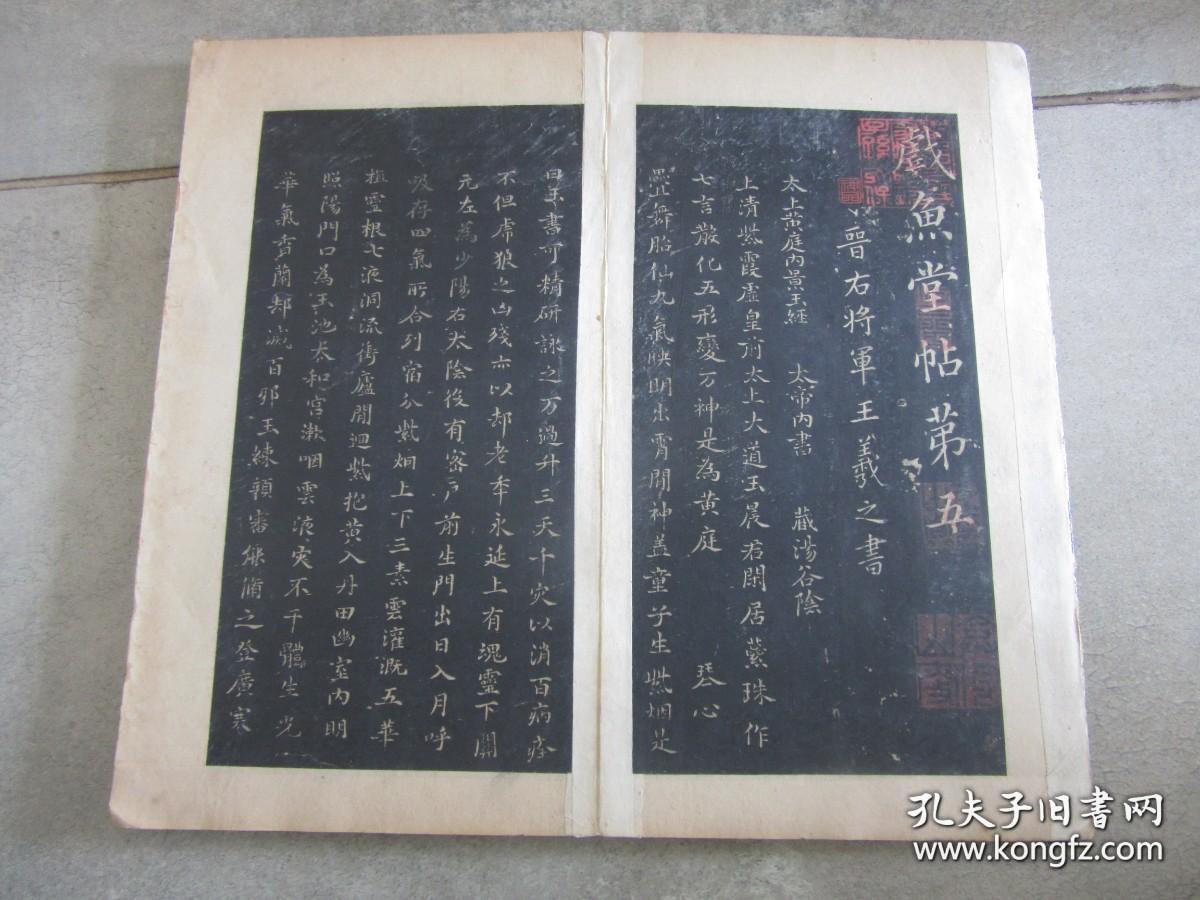 戲魚堂帖第五
晉右將軍王羲之書
太上黃庭內景玉經　太帝內書　藏湯谷陰
上清紫霞虛皇前太上大道玉晨君閑居蘂珠作
七言散化五形變万神是為黃庭　琴心
疊舞胎仙九氣映明出霄間神盖童子生紫烟是
曰玉書可精研詠之万過升三天千灾以消百病痊
不但虎狼之凶殘亦以却老年永延上有魂靈下關
元左為少陽右太陰後有密戶前生門出日入月呼
吸存四氣所合列宿分紫烟上下三素雲灌溉五華
植靈根七液洞流衝廬間迴紫抱黃入丹田幽室內明
照陽門口為玉池太和宮漱咽雲液灾不干體生光
華氣香蘭却滅百邪玉練顏審能脩之登廣寒
孔夫子旧书网
www.kongfz.com